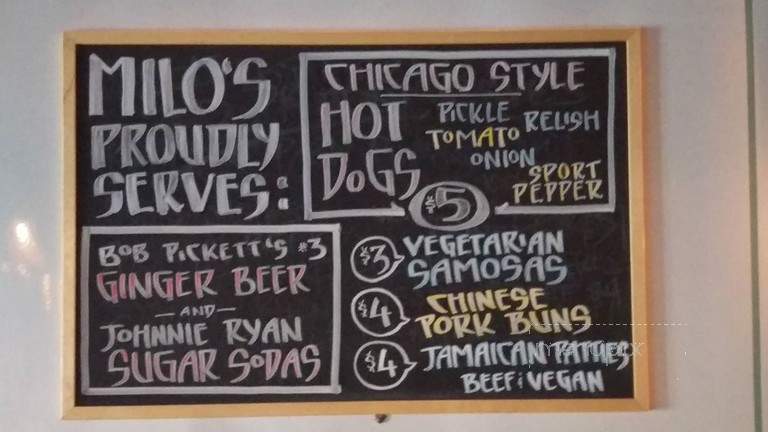 MILO'S
PROUDLY
SERVES:
CHICAGO STYLE
HOT DOGS
PICKLE
RELISH
TOMATO
ONION
SPORT
PEPPER
$5
BOB PICKETT'S $3
GINGER BEER
—AND—
JOHNNIE RYAN
SUGAR SODAS
$3 VEGETARIAN
SAMOSAS
$4 CHINESE
PORK BUNS
$4 JAMAICAN PATTIES
BEEF & VEGAN